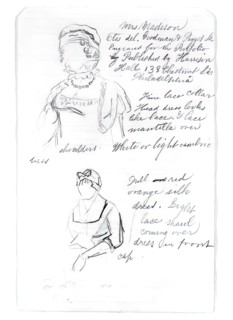 Mrs. Madison
Otis del. Goodman & Piggot Sc
Engraved for the Portfolio
by Published by Harrison
Hall 133 Chestnut St.
Philadelphia
Fine lace collar
Head dress looks
like lace & lace
mantilla over
shoulders. White or light cambric
dress
Full red
orange silk
dress. Light
lace shawl
coming over
dress in front
cap.